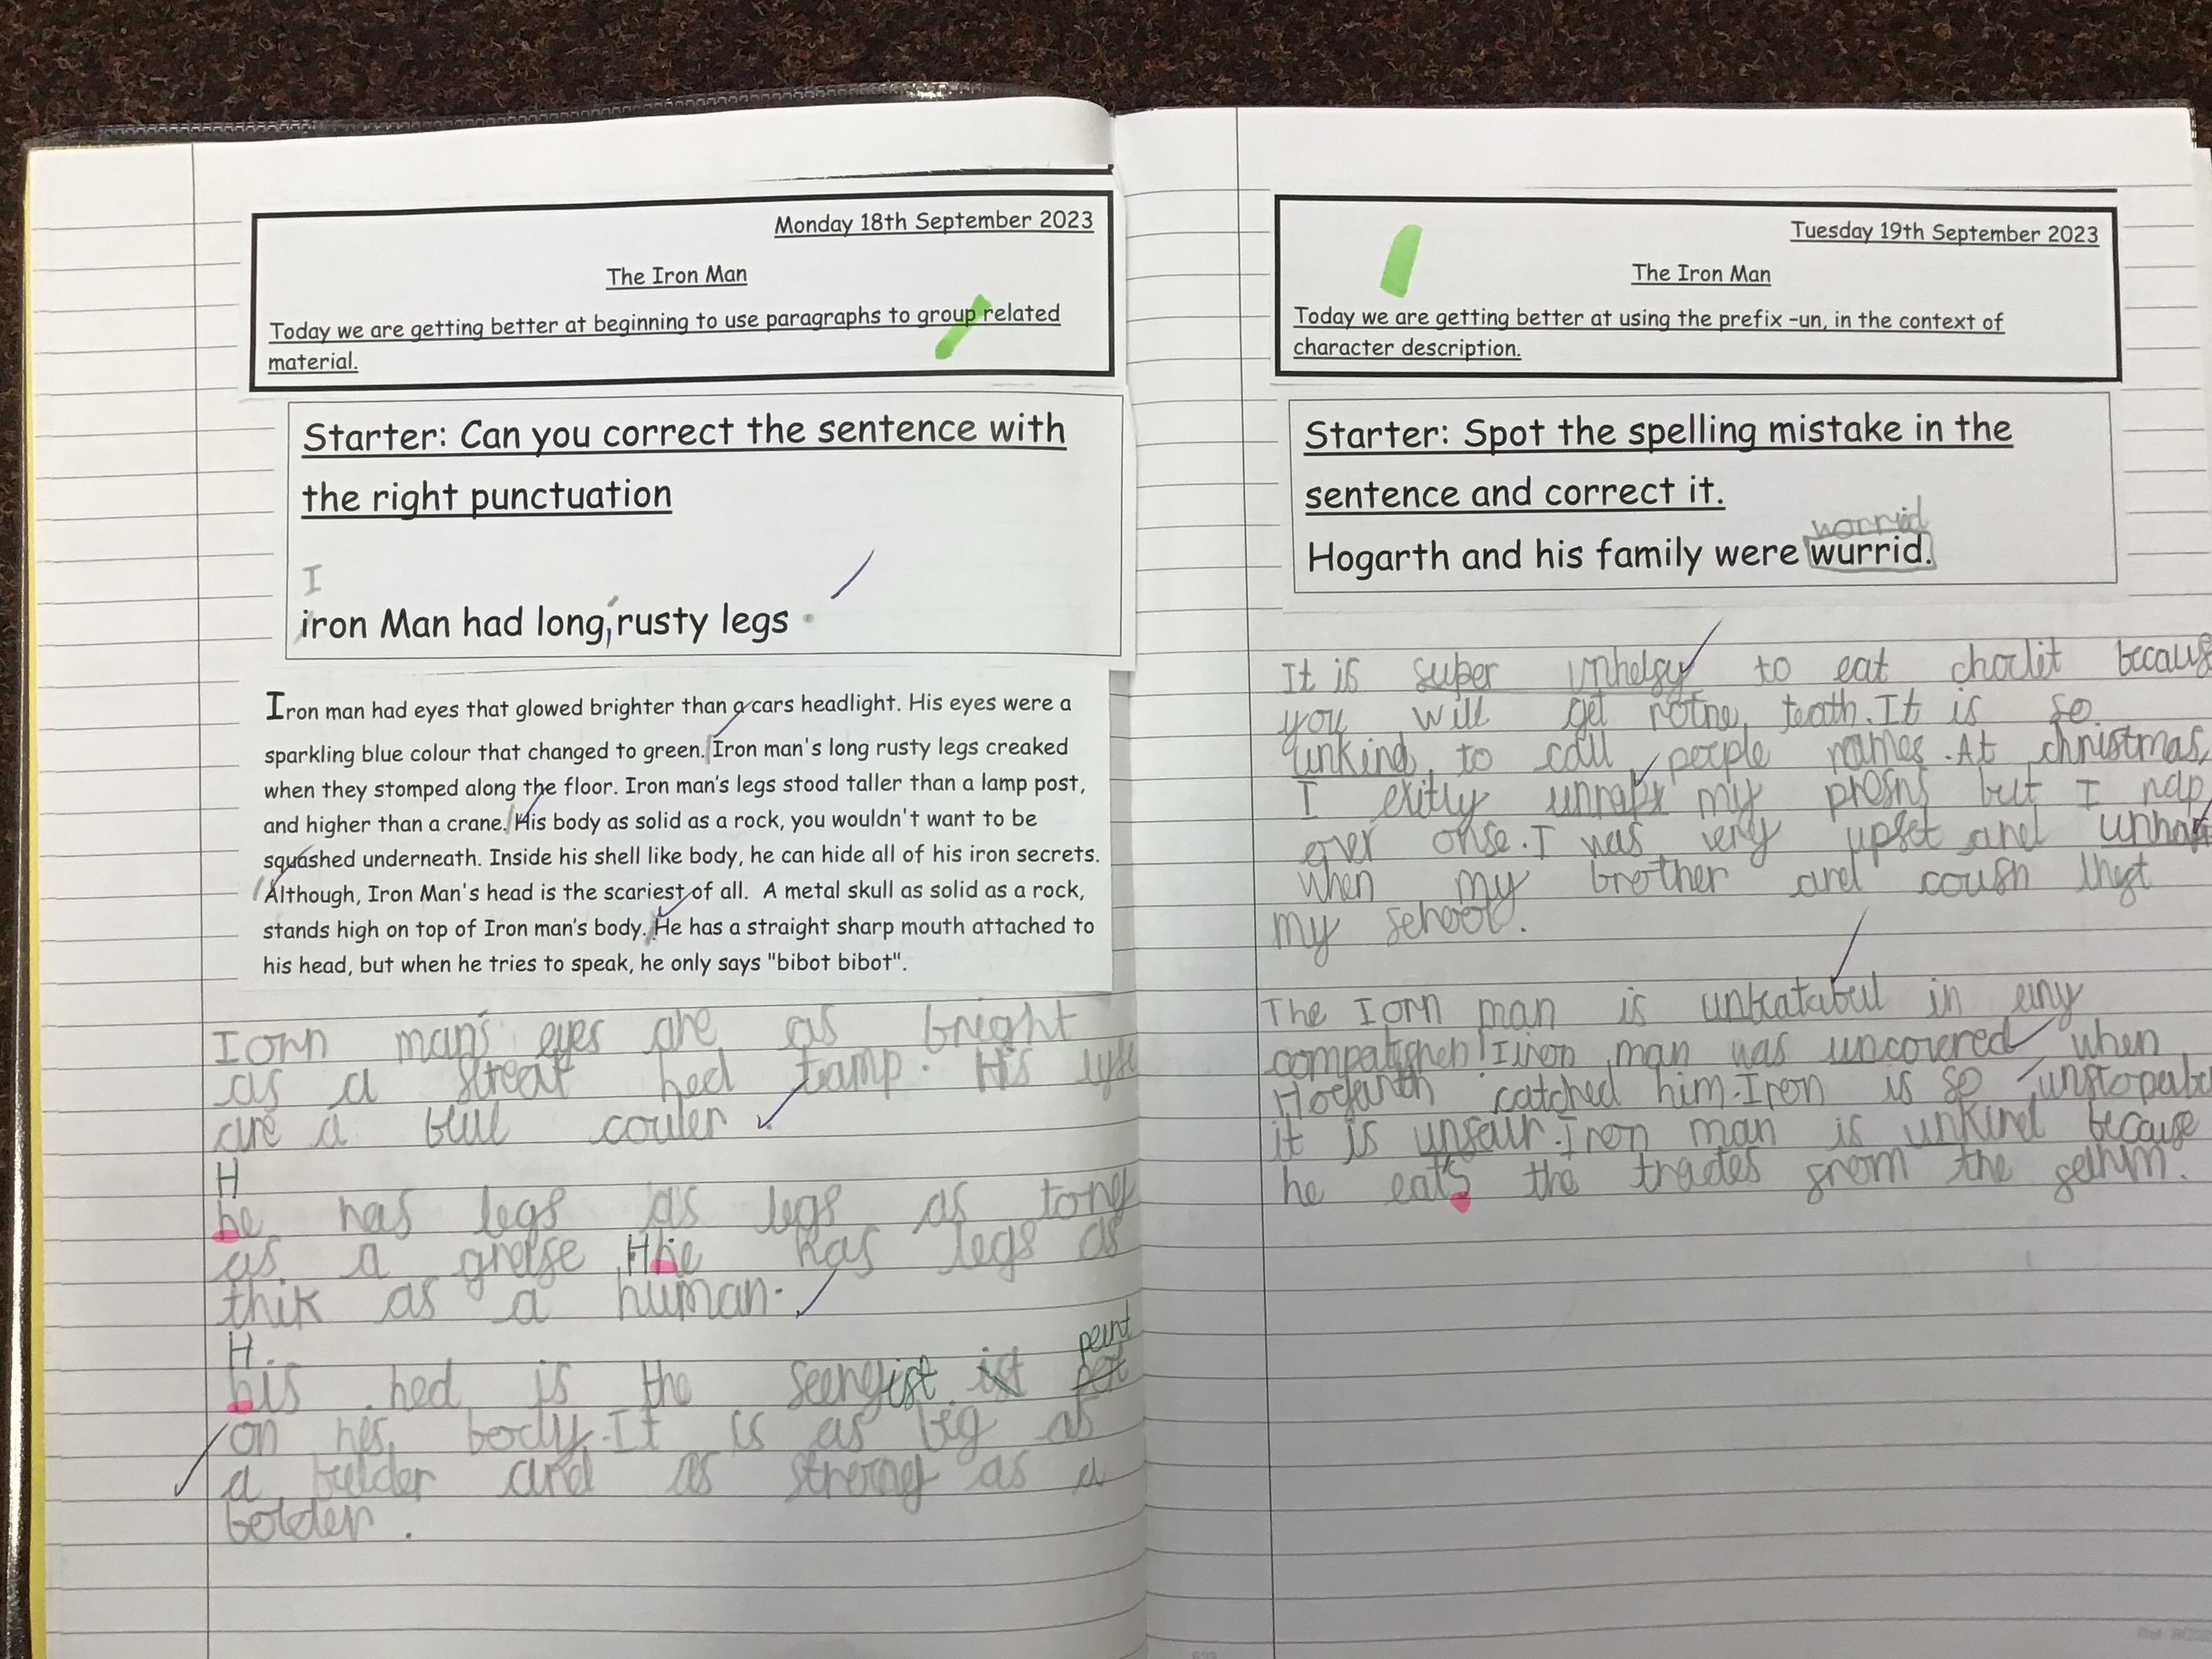 Monday 18th September 2023
The Iron Man
Today we are getting better at beginning to use paragraphs to group related
material.
Starter: Can you correct the sentence with
the right punctuation
I
iron Man had long, rusty legs .
Iron man had eyes that glowed brighter than a cars headlight. His eyes were a
sparkling blue colour that changed to green. Iron man's long rusty legs creaked
when they stomped along the floor. Iron man's legs stood taller than a lamp post,
and higher than a crane. His body as solid as a rock, you wouldn't want to be
squashed underneath. Inside his shell like body, he can hide all of his iron secrets.
Although, Iron Man's head is the scariest of all. A metal skull as solid as a rock,
stands high on top of Iron man's body. He has a straight sharp mouth attached to
his head, but when he tries to speak, he only says "bibot bibot".
Iorn man's eyes are as bright
as a streat hed lamp. His
are a blul couler
H
he has legs as legs as long
as a Hhe has legs as
thik as a human.
H
his hed is the
on his body. It is as big as
a and as strong as a
bolder.
Tuesday 19th September 2023
The Iron Man
Today we are getting better at using the prefix -un, in the context of
character description.
Starter: Spot the spelling mistake in the
sentence and correct it.
worrid
Hogarth and his family were wurrid.
It is super unhelfy to eat choclit becaus
you will get rotne teath. It is so
unkind to call people names. At christmas,
I exitly my but I
over onse. I was very upset and
when my brother and
my school.
The Iorn man is in eny
man was uncovered when
Hogarth catched him. Iron is so
it is unfair. Iron man is unkind because
he eats the from the